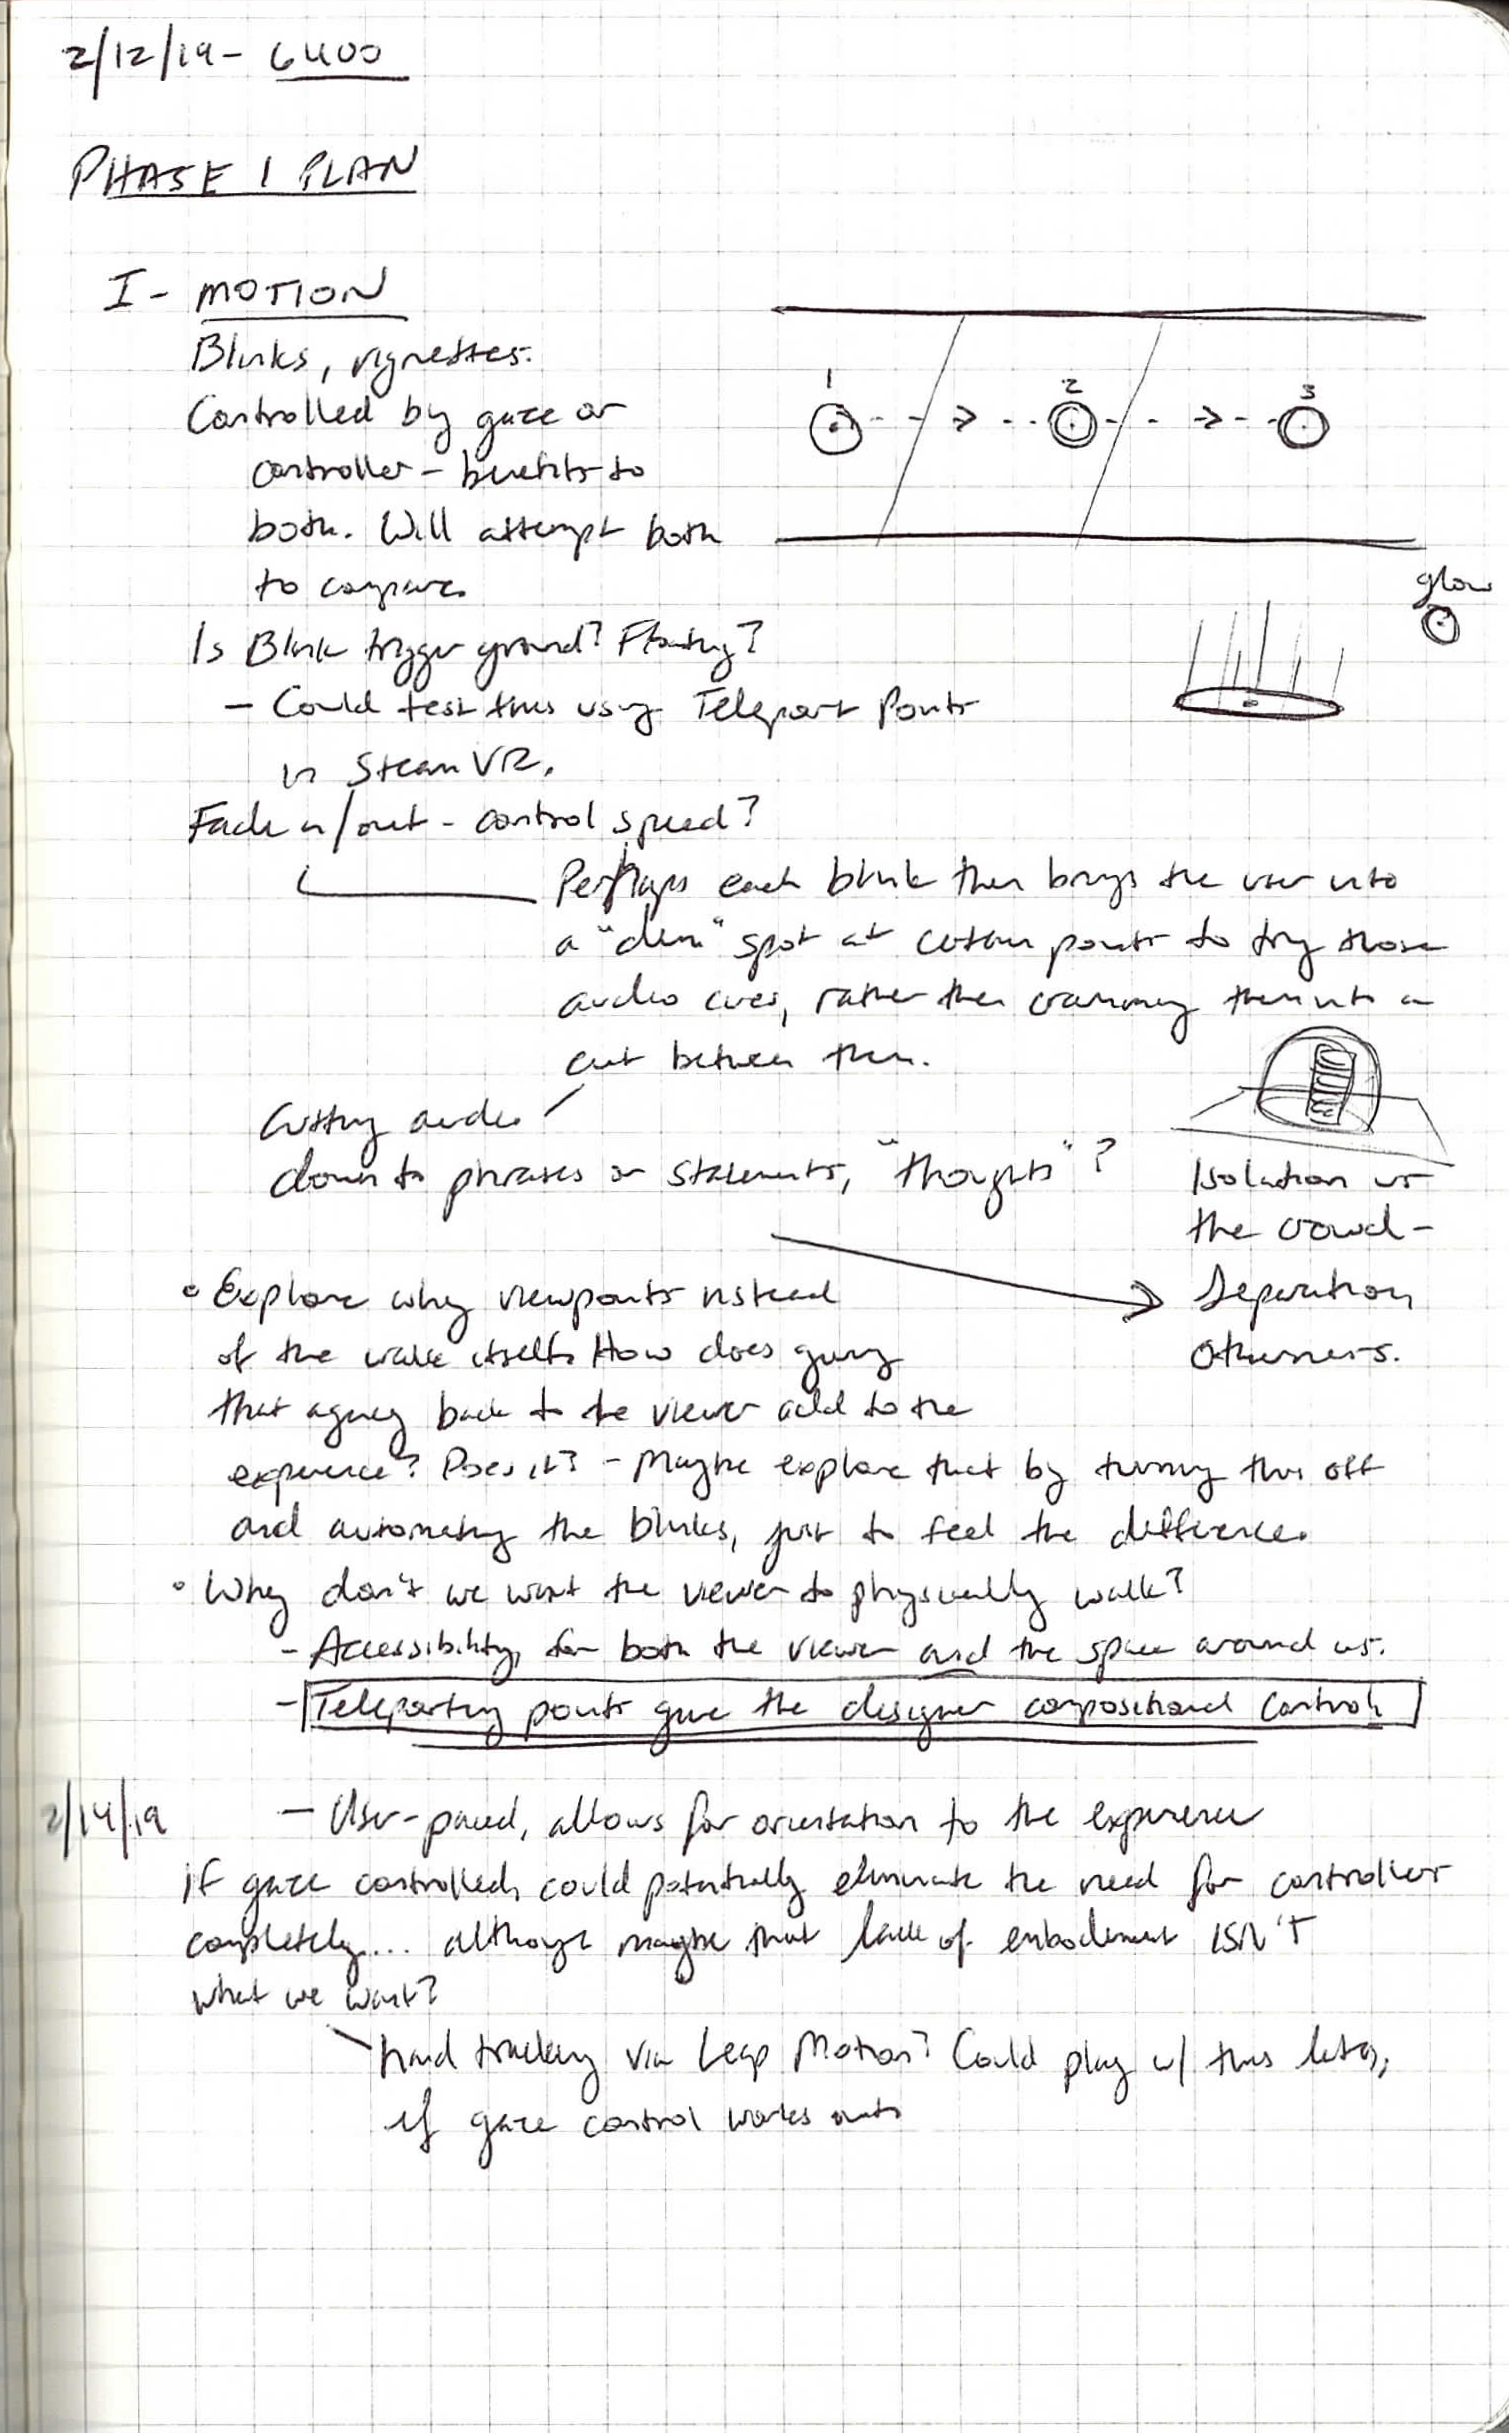 2/12/19 - 6400
PHASE 1 PLAN
I - MOTION
Blinks, vignettes.
Controlled by gaze or
controller - benefits to
both. Will attempt both
to compare.
1
2
3
glow
Is Blink trigger ground? Floating?
- Could test this using Teleport Points
in SteamVR.
Fade in/out - control speed?
Perhaps each blink then brings the user into
a "dim" spot at certain points to try those
audio cues, rather than cramming them into a
cut between them.
Cutting audio
down to phrases or statements, "thoughts"?
Isolation vs
the crowd -
Separation
Otherness.
• Explore why viewpoints instead
of the walk itself. How does giving
that agency back to the viewer add to the
experience? Does it? - Maybe explore that by turning this off
and automating the blinks, just to feel the difference.
• Why don't we want the viewer to physically walk?
- Accessibility, for both the viewer and the space around us.
- Teleporting points give the designer compositional control.
2/14/19 - User-paced, allows for orientation to the experience
If gaze controlled, could potentially eliminate the need for controller
completely... although maybe that lack of embodiment ISN'T
what we want?
hand tracking via Leap Motion? Could play w/ this later,
if gaze control works out.